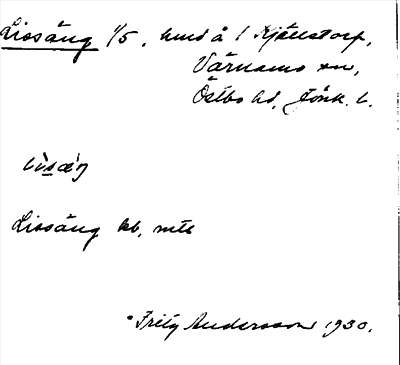 Lissäng 1/5, hmd å 1 Kjällstorp,
Värnamo sn,
Östbo hd, Jönk. l.
lìsæ̀ŋ
Lissäng kb, mtb
Fritz Andersson 1930.